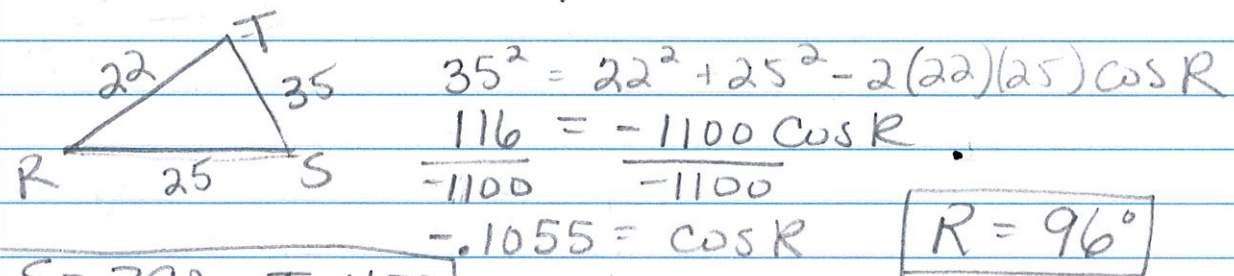 T
22
35
R
25
S
35² = 22² + 25² - 2(22)(25) cos R
116 = -1100 Cos R
-1100 -1100
-.1055 = cos R
R = 96°